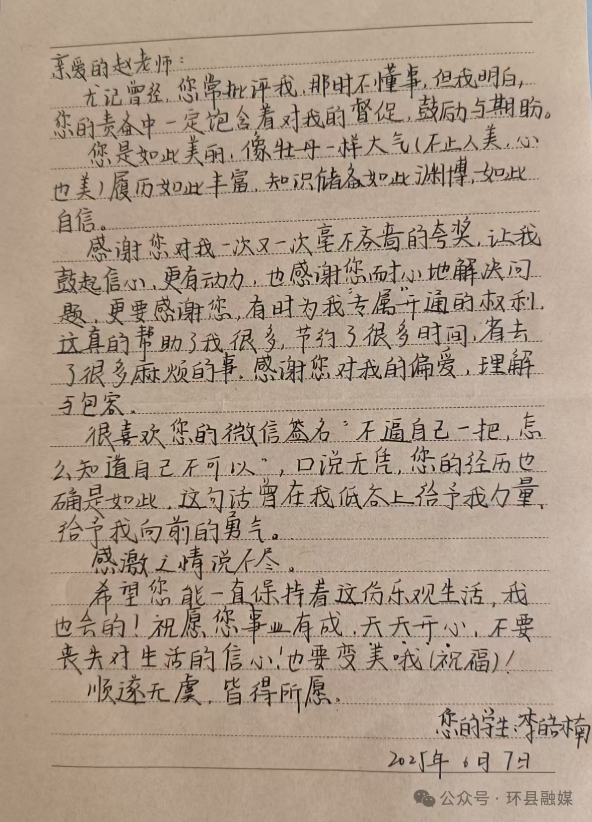 亲爱的赵老师：
尤记曾经，您常批评我，那时不懂事，但我明白，
您的责备中一定饱含着对我的督促，鼓励与期盼。
您是如此美丽，像牡丹一样大气（不止人美，心
也美）履历如此丰富，知识储备如此渊博，如此
自信。
感谢您对我一次又一次毫不吝啬的夸奖，让我
鼓起信心，更有动力，也感谢您耐心地解决问
题，更要感谢您，有时为我“专属”开通的权利，
这真的帮助了我很多，节约了很多时间，省去
了很多麻烦的事，感谢您对我的偏爱，理解
与包容。
很喜欢您的微信签名“不逼自己一把，怎
么知道自己不可以”，口说无凭，您的经历也
确是如此，这句话曾在我低谷上给予我力量，
给予我向前的勇气。
感激之情说不尽。
希望您能一直保持着这份乐观生活，我
也会的！祝愿您事业有成，天天开心，不要
丧失对生活的信心！也要变美哦（祝福）！
顺遂无虞，皆得所愿。
您的学生：李皓楠
2025年6月7日
公众号·环县融媒